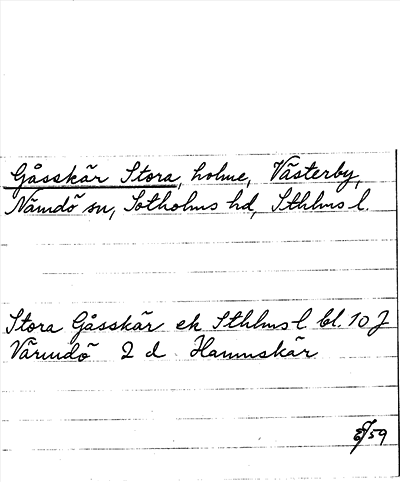 Gåsskär Stora, holme, Västerby,
Nämdö sn, Sotholms hd, Sthlms l.
Stora Gåsskär ek Sthlms l bl. 10 J
Värmdö 2 d Hammskär
/59